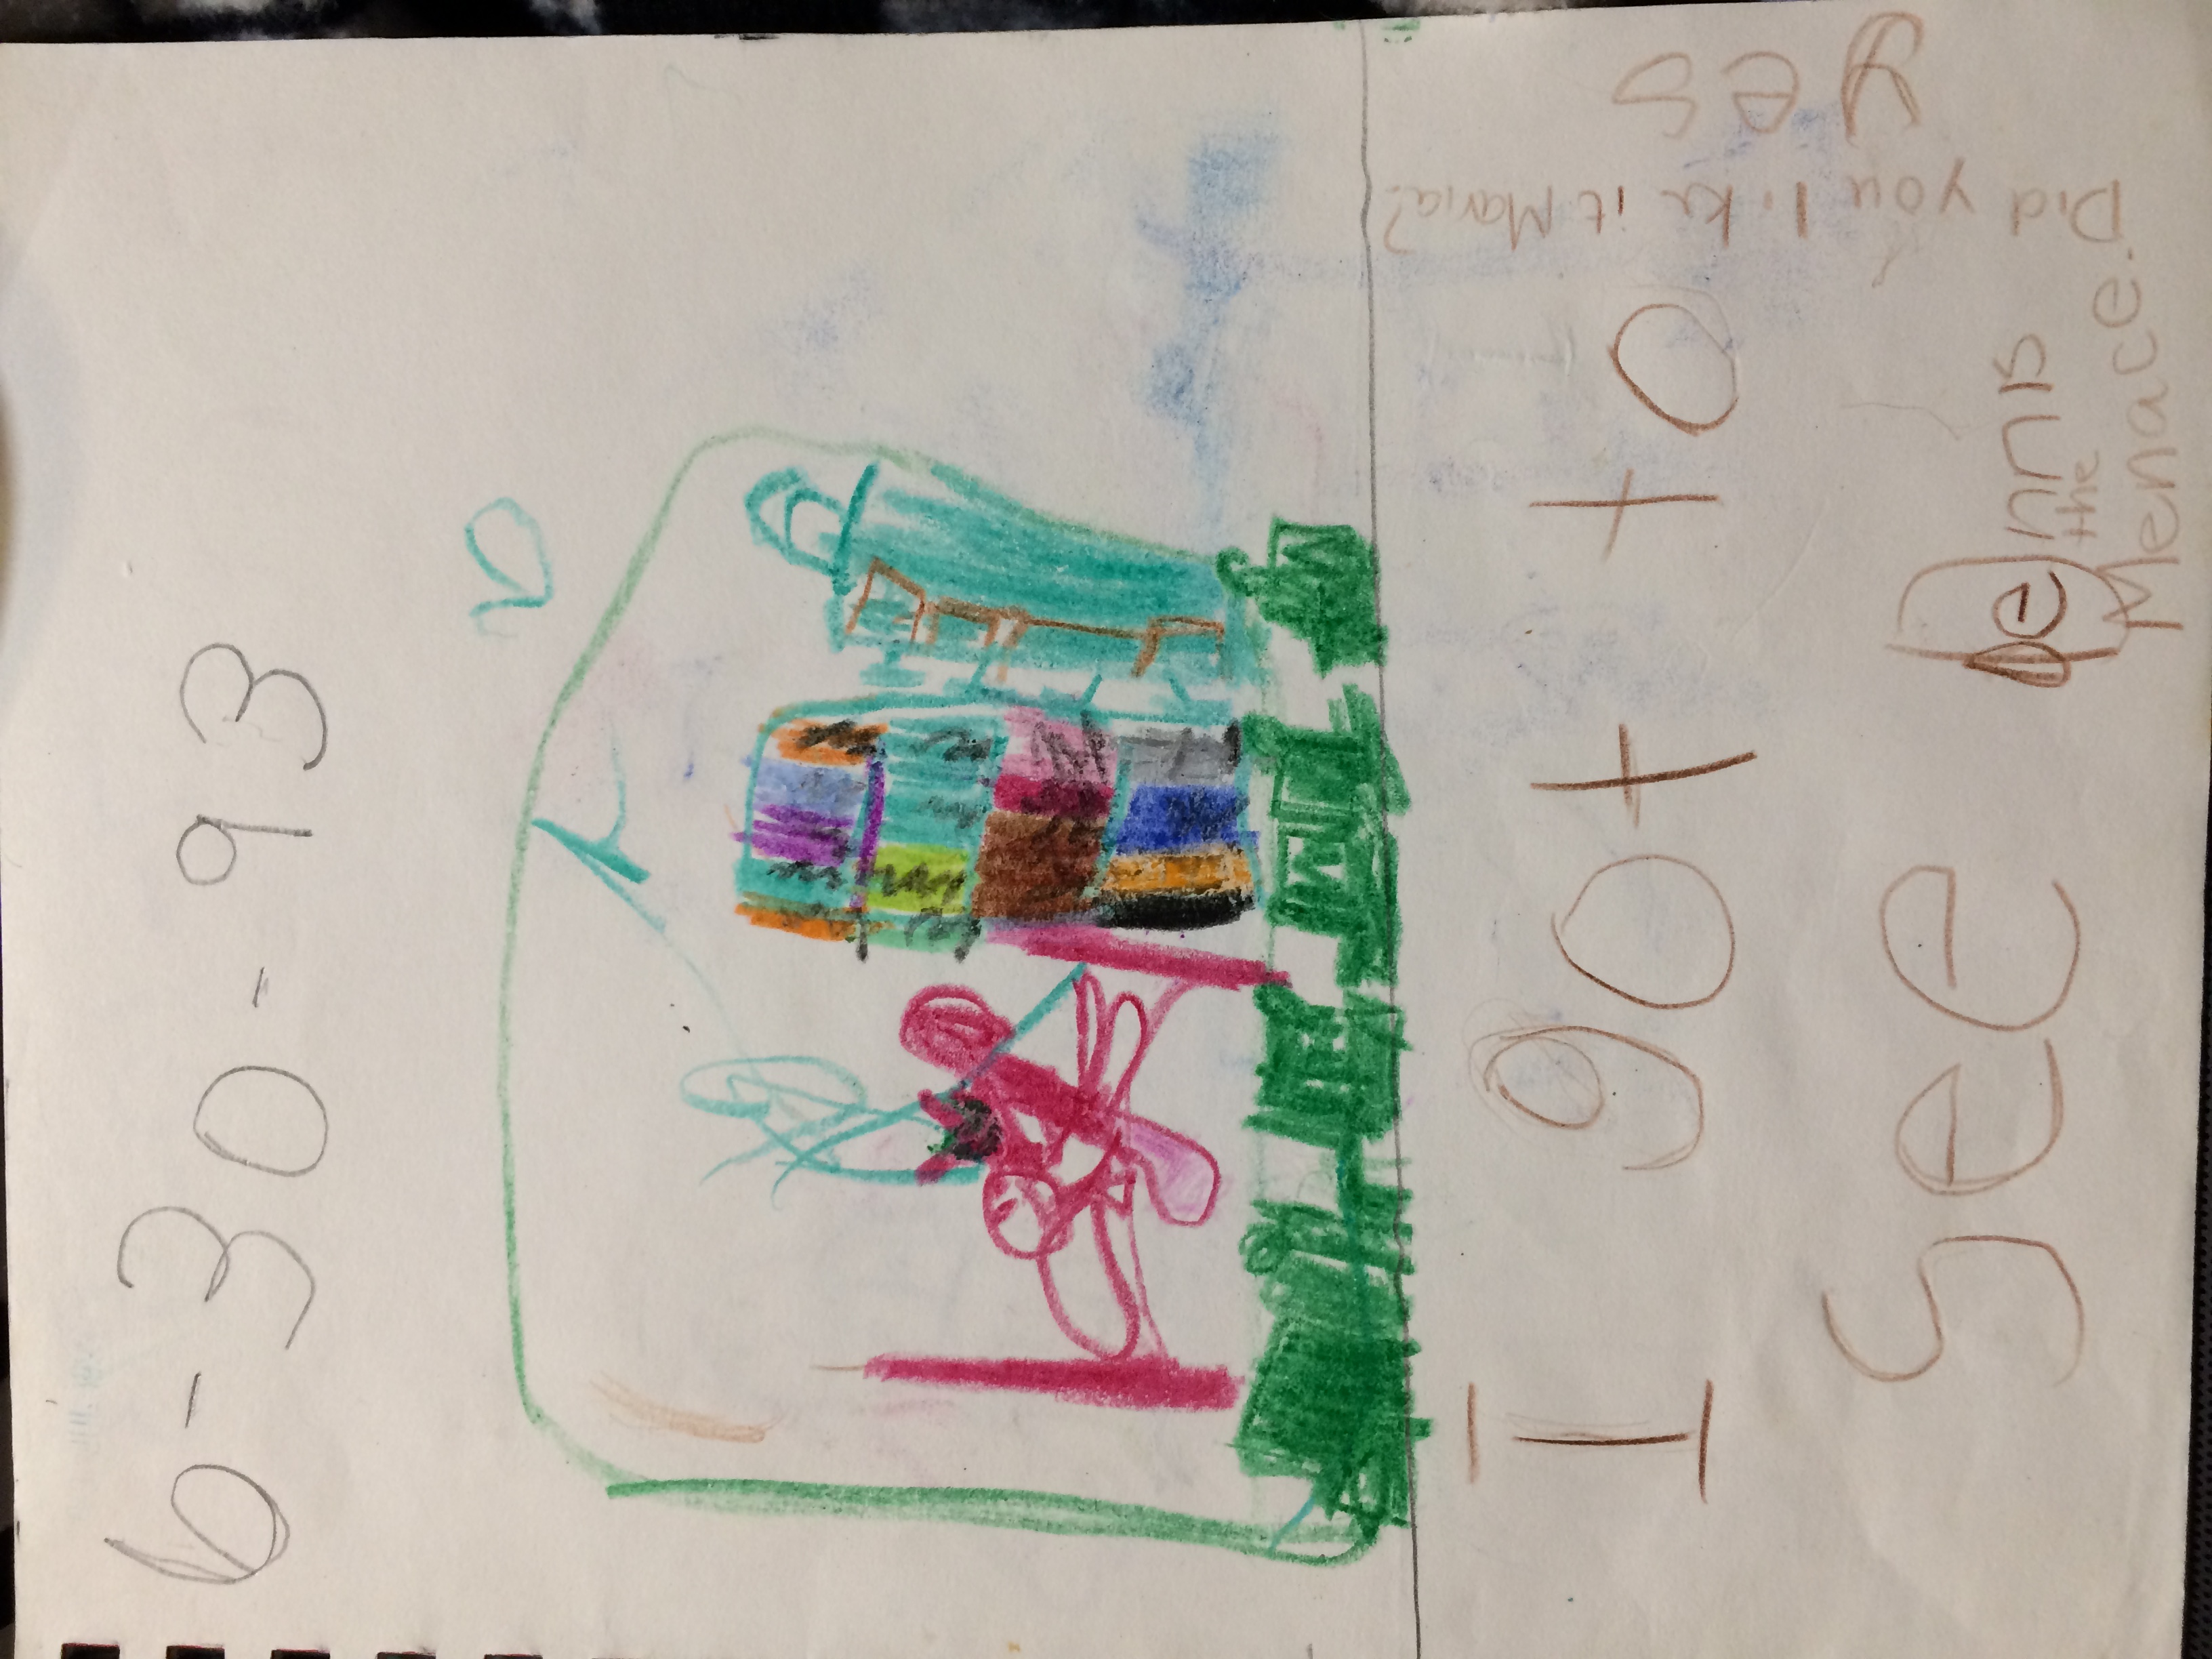 6-30-93
I got to
See Dennis
the
Menace.
Did you like it Maria?
yes